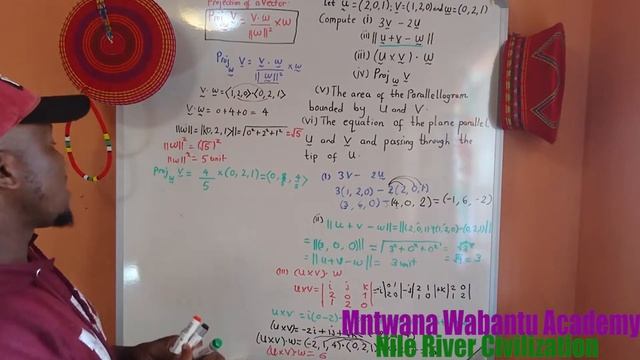 Projection of a Vector:
Proj_w V = V·w / ||w||² × w
Proj_w V = V·w / ||w||² × w
V·w = <(1,2,0)·(0,2,1)>
V·w = 0+4+0 = 4
||w|| = ||(0,2,1)|| = √0²+2²+1² = √5
||w||² = (√5)²
||w||² = 5 unit
Proj_w V = 4/5 × (0,2,1) = (0, 8/5, 4/5)
Let u = (2,0,1); V = (1,2,0) and w = (0,2,1)
Compute (i) 3V - 2U
(ii) ||u+v-w||
(iii) (U×V)·w
(iv) Proj_w V
(v) The area of the Parallellogram
bounded by U and V.
(vi) The equation of the plane parallel
U and V and passing through the
tip of U.
(i) 3V - 2U
3(1,2,0) - 2(2,0,1)
(3,6,0) - (4,0,2) = (-1,6,-2)
(ii) ||u+v-w|| = ||(2,0,1)+(1,2,0)-(0,2,1)||
= ||(3,0,0)|| = √3²+0²+0² = √3²
= ||u+v-w|| = 3 unit = √9 = 3
(iii) (U×V)·w
U×V =
i j k
2 0 1
1 2 0
U×V = i(0-2)
(U×V) = -2i+1j+
(U×V)·w = (-2,1,4)·(0,2,1)
(U×V)·w = 6
Mntwana Wabantu Academy
Nile River Civilization